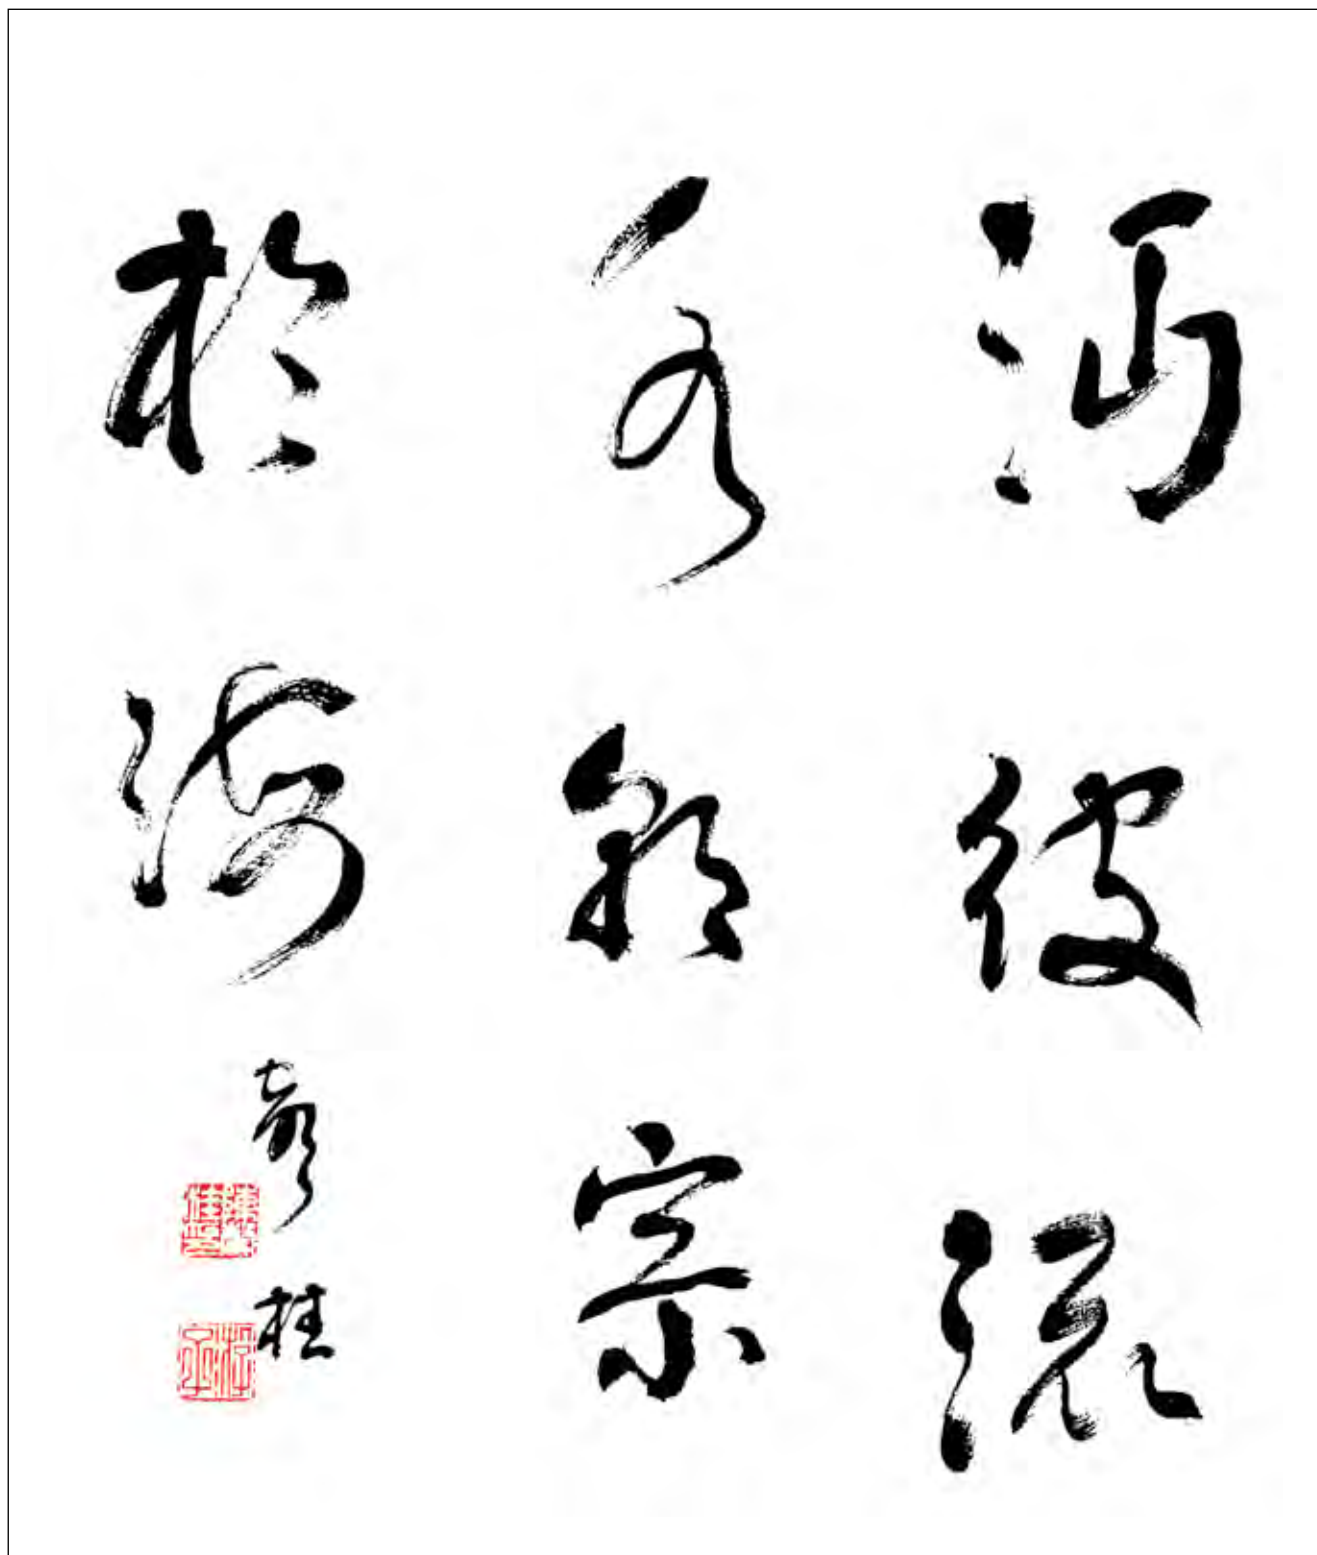 沔彼流
水朝宗
於海